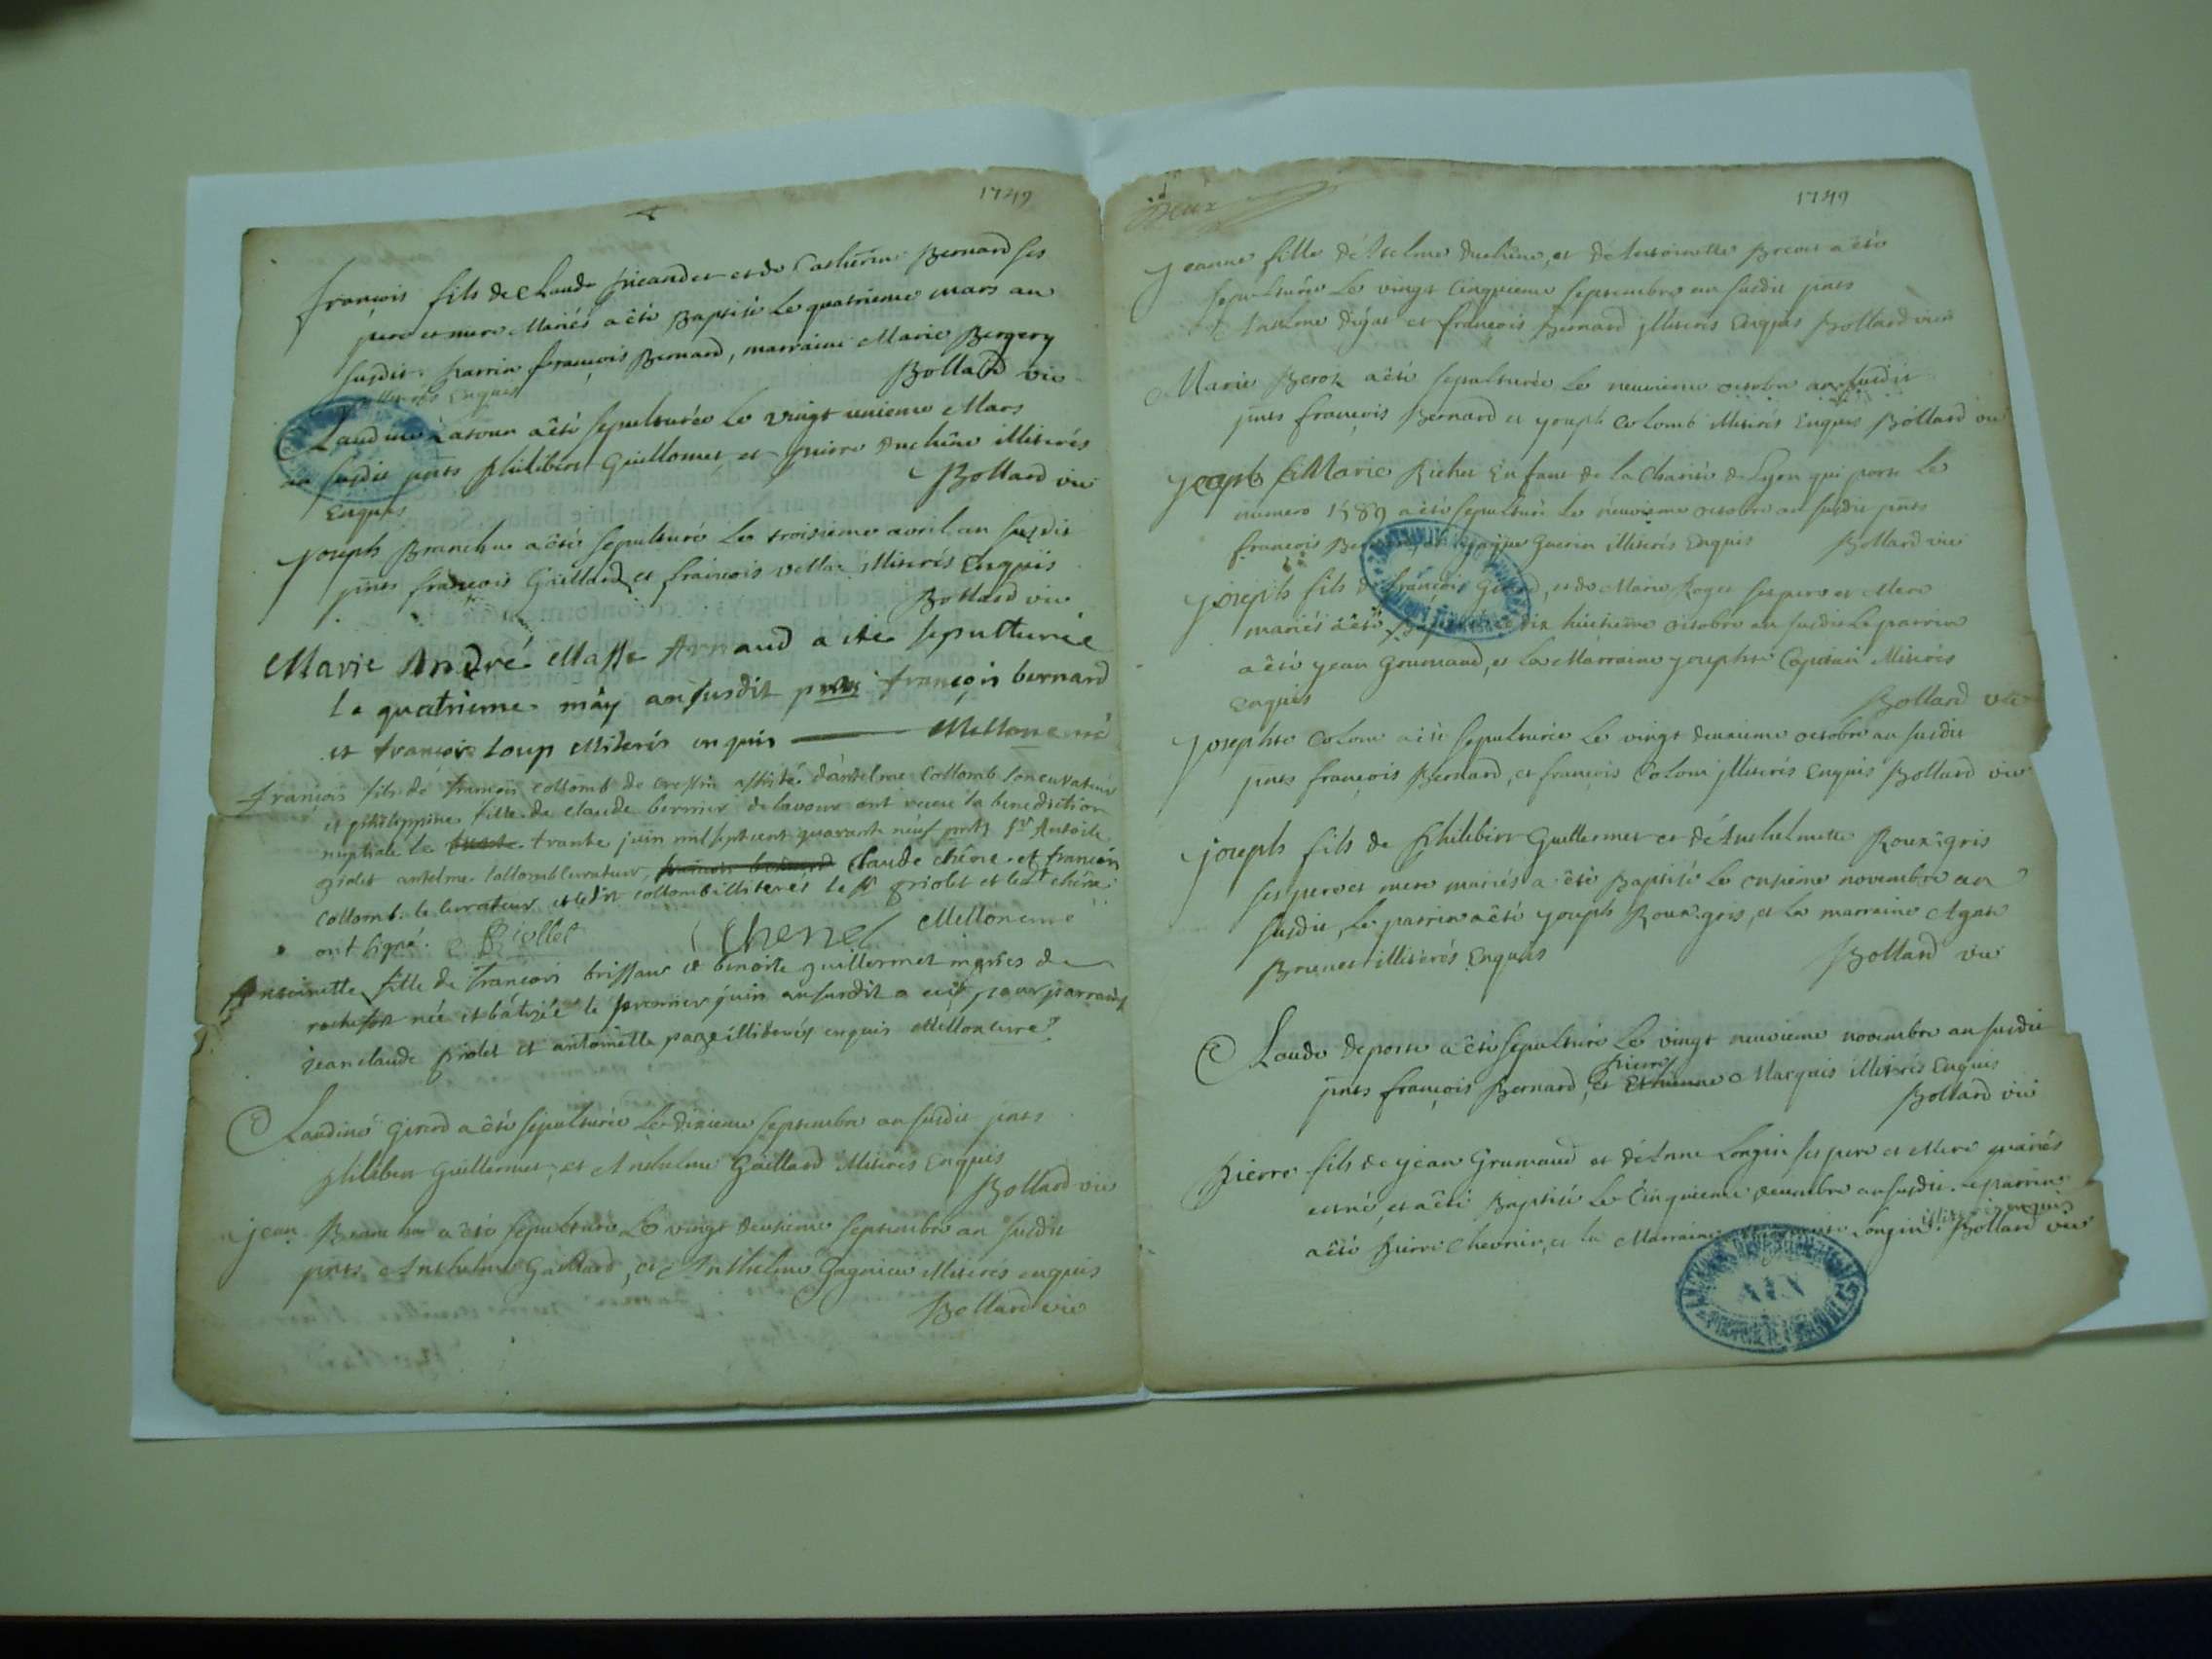 1749
françois fils de Claude fricandet et de Catherine Bernard ses
pere et mere Mariés a êté Baptisé Le quatrieme mars an
susdit. parrin françois Bernard, marraine Marie Bergery
illiterés Enquis Bollard vic
Claudine Latour a êté sepulturée Le vingt unieme Mars
an susdit pnts philibert Guillomet et pierre Duchêne illiterés
Enquis Bollard vic
Joseph Branchu a êté sepulturé Le troisieme avril an susdit
pnts françois Gaillard et francois vella illiterés Enquis
Bollard vic
Marie André Masse Arnaud a êté sepulturée
le quatrieme may an susdit pnts françois bernard
et françois Loup illiterés enquis
françois fils de francois collomb de cressin assisté d'antelme Collomb son curateur
et philippine fille de claude bernier de lavour ont receu la benediction
nuptiale le trante juin mil sept cent quarante neuf pnts Sr Antoile
griolet antelme Collomb curateur, claude chêne et francois
Collomb. le curateur et ledit collomb illiterés le Sr griolet et ledt chêne
ont signé. Chenel
Antoinette fille de françois brissaud et benoite guillermet mariés de
rochefort née et bâtisée le premier juin an susdit a eut pour parrains
jean claude griolet et antoinette page illiterés enquis
Claudine Girerd a êté sepulturée Le dixieme septembre an susdit pnts
philibert Guillermet, et Anthelme Gaillard illiterés Enquis
Bollard vic
jean Branchu a êté sepulturé Le vingt deuxieme septembre an susdit
pnts Anthelme Gaillard, et Anthelme Gagnieu illiterés enquis
Bollard vic
Deux
1749
Jeanne fille d'Antelme Duchêne, et d'Antoinette a êté
sepulturée Le vingt Cinquieme septembre an susdit pnts
Anthelme et francois Bernard illiterés Enquis Bollard vic
Marie a êté sepulturée Le neuvieme octobre an susdit
pnts françois Bernard et joseph Colomb illiterés Enquis Bollard vic
Joseph Marie Richet Enfant de la Charité de Lyon qui porte Le
numero 1589 a êté sepulturé Le neuvieme octobre an susdit pnts
francois Guerin illiterés Enquis Bollard vic
joseph fils de françois et de Marie Roger ses pere et Mere
mariés a êté Baptisé Le dix huitieme octobre an susdit Le parrin
a êté jean Grumaud, et La Marraine josephte Capitan illiterés
Enquis Bollard vic
josephte Colom a êté sepulturée Le vingt deuxieme octobre an susdit
pnts françois Bernard, et françois Colom illiterés Enquis Bollard vic
joseph fils de Philibert Guillermet et d'Anthelmette Roux-gris
ses pere et mere mariés a êté Baptisé Le onsieme novembre an
susdit, Le parrin a êté joseph Roux-gris, et La marraine Agate
Brunet illiterés Enquis Bollard vic
Claude deporte a êté sepulturé Le vingt neuvieme novembre an susdit
pierre
pnts françois Bernard, et Etienne Marquis illiterés Enquis
Bollard vic
pierre fils de jean Grumaud et d'Anne Longin ses pere et Mere mariés
est né, et a êté Baptisé Le Cinquieme decembre an susdit. Le parrin
illiterés enquis
a êté pierre Chevrier, et La Marraine Longin. Bollard vic
AIN